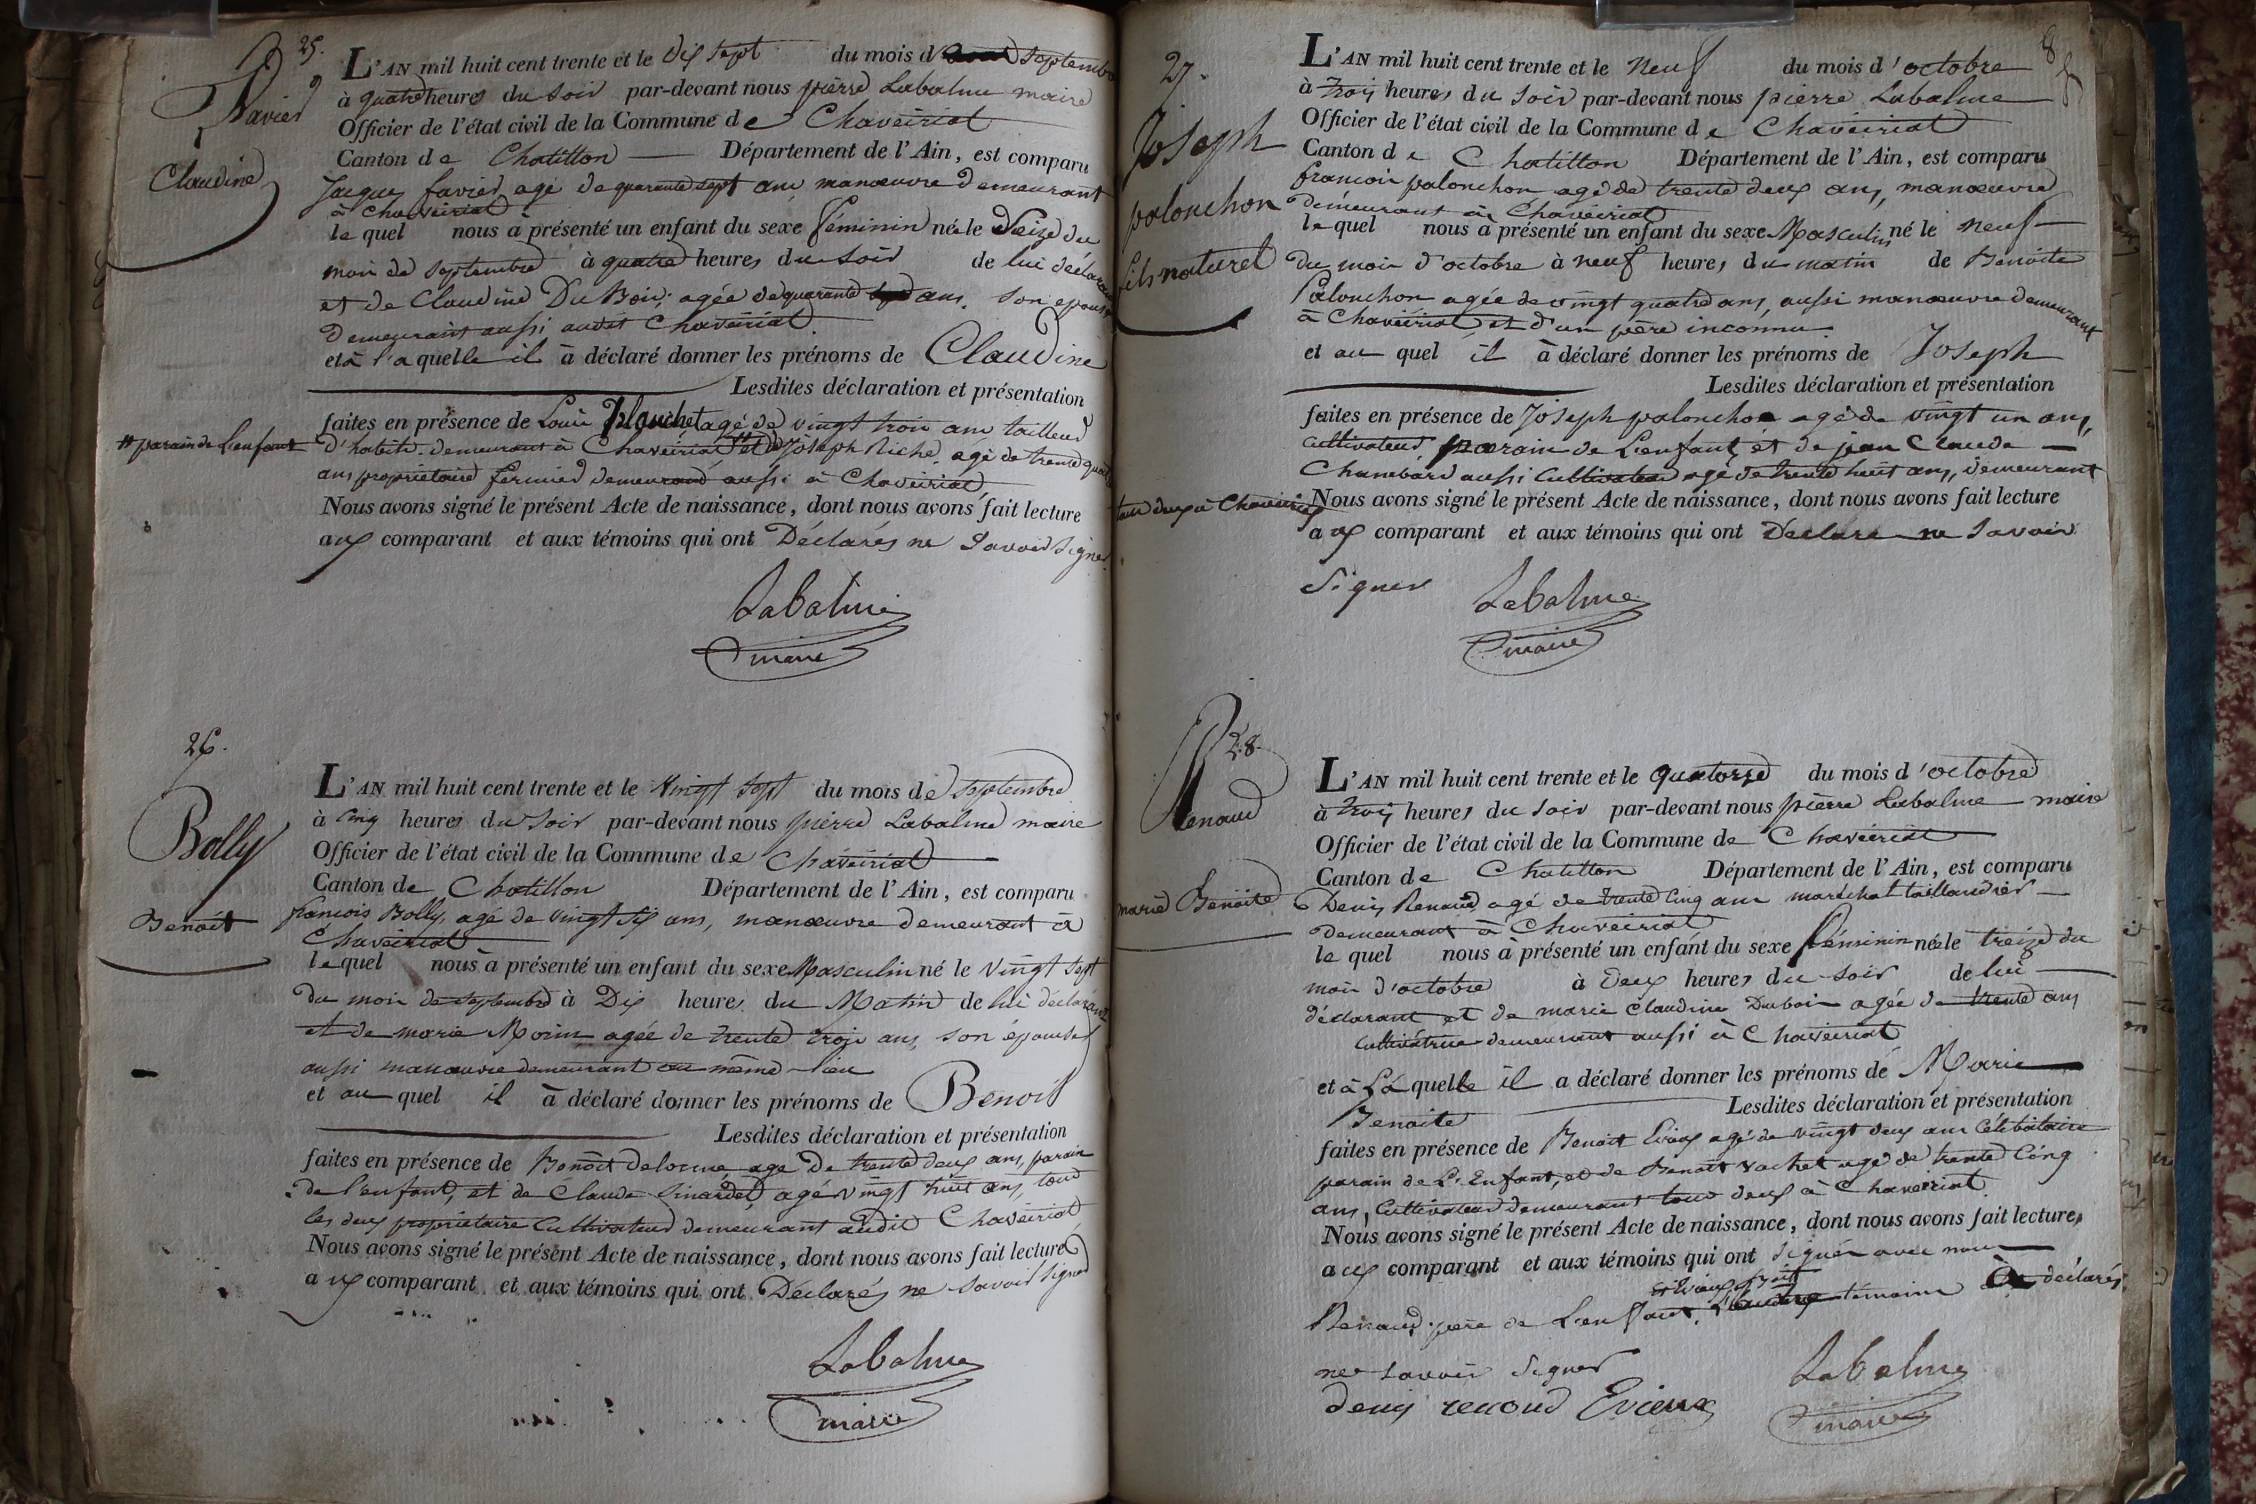 25.
Favier
Claudine
L'AN mil huit cent trente et le dix sept du mois d septembre
à quatre heures du soir par-devant nous pierre Labalme maire
Officier de l'état civil de la Commune de Chaveiriat
Canton de Chatillon Département de l'Ain, est comparu
Jacques favier agé de quarante sept ans manœuvre demeurant
à Chaveiriat
le quel nous à présenté un enfant du sexe féminin née le Seize du
mois de septembre à quatre heures du soir de lui déclarant
et de Claudine DuBois agée de quarante ans son epouse
Demeurant aussi audit Chaveiriat
et à l'a quelle il à déclaré donner les prénoms de Claudine
Lesdites déclaration et présentation
faites en présence de Louis planchet agé de vingt trois ans tailleur
# parain de l'enfant
d'habits demeurant à Chaveiriat # et de Joseph Riche agé de trente quatre
ans propriétaire fermier demeurant aussi à Chaveiriat
Nous avons signé le présent Acte de naissance, dont nous avons fait lecture
aux comparant et aux témoins qui ont Déclarés ne Savoir Signer
Labalme
maire
26.
Bolly
Benoit
L'AN mil huit cent trente et le Vingt sept du mois de septembre
à cinq heures du soir par-devant nous pierre Labalme maire
Officier de l'état civil de la Commune de Chaveiriat
Canton de Chatillon Département de l'Ain, est comparu
francois Bolly, agé de vingt six ans, manœuvre demeurant à
Chaveiriat
le quel nous à présenté un enfant du sexe Masculin né le vingt sept
du mois de septembre à Dix heures du Matin de lui déclarant
et de marie Morin agée de trente trois ans, son épouse
aussi manœuvre demeurant au même lieu
et au quel il à déclaré donner les prénoms de Benoit
Lesdites déclaration et présentation
faites en présence de Benoît delorme age De trente deux ans, parain
de l'enfant, et de Claude Sinardet agé vingt huit ans, tous
les deux propriétaire Cultivateur demeurant audit Chaveiriat
Nous avons signé le présent Acte de naissance, dont nous avons fait lecture
aux comparant et aux témoins qui ont Déclarés ne Savoir Signer
Labalme
maire
8
27.
Joseph
palonchon
fils naturel
L'AN mil huit cent trente et le Neuf du mois d'octobre
à trois heures du soir par-devant nous pierre Labalme
Officier de l'état civil de la Commune de Chaveiriat
Canton de Chatillon Département de l'Ain, est comparu
francois palonchon agé de trente deux ans, manœuvre
demeurant à Chaveiriat
le quel nous à présenté un enfant du sexe Masculin né le neuf
du mois d'octobre à neuf heures du matin de Benoite
Palonchon agée de vingt quatre ans, aussi manœuvre demeurant
à Chaveiriat et d'un père inconnu
et au quel il à déclaré donner les prénoms de Joseph
Lesdites déclaration et présentation
faites en présence de Joseph palonchon agé de vingt un ans,
cultivateur, parain de L'enfant et de jean Claude
Chambard aussi Cultivateur agé de trente huit ans, demeurant
tous deux à Chaveiriat
Nous avons signé le présent Acte de naissance, dont nous avons fait lecture
aux comparant et aux témoins qui ont Déclare ne Savoir
Signer Labalme
maire
28.
Renaud
marie Benoite
L'AN mil huit cent trente et le quatorze du mois d'octobre
à trois heures du soir par-devant nous pierre Labalme maire
Officier de l'état civil de la Commune de Chaveiriat
Canton de Chatillon Département de l'Ain, est comparu
Denis Renaud agé de trente cinq ans maréchal taillandier
Demeurant à Chaveiriat
le quel nous à présenté un enfant du sexe féminin née le treize du
mois d'octobre à deux heures du soir de lui
déclarant et de marie Claudine Dubois agée de trente ans
Cultivatrice demeurant aussi à Chaveiriat
et à La quelle il a déclaré donner les prénoms de Marie
Benoite Lesdites déclaration et présentation
faites en présence de Benoit Evieux agé de vingt deux ans Célibataire
parain de L'Enfant, et de Benoit Vachet agé de trente Cinq
ans, Cultivateur demeurant tous deux à Chaveiriat
Nous avons signé le présent Acte de naissance, dont nous avons fait lecture,
aux comparant et aux témoins qui ont signés avec nous
Renaud père de L'enfant, témoins déclarés
ne savoir Signer
denis renoud Evieux
Labalme
maire